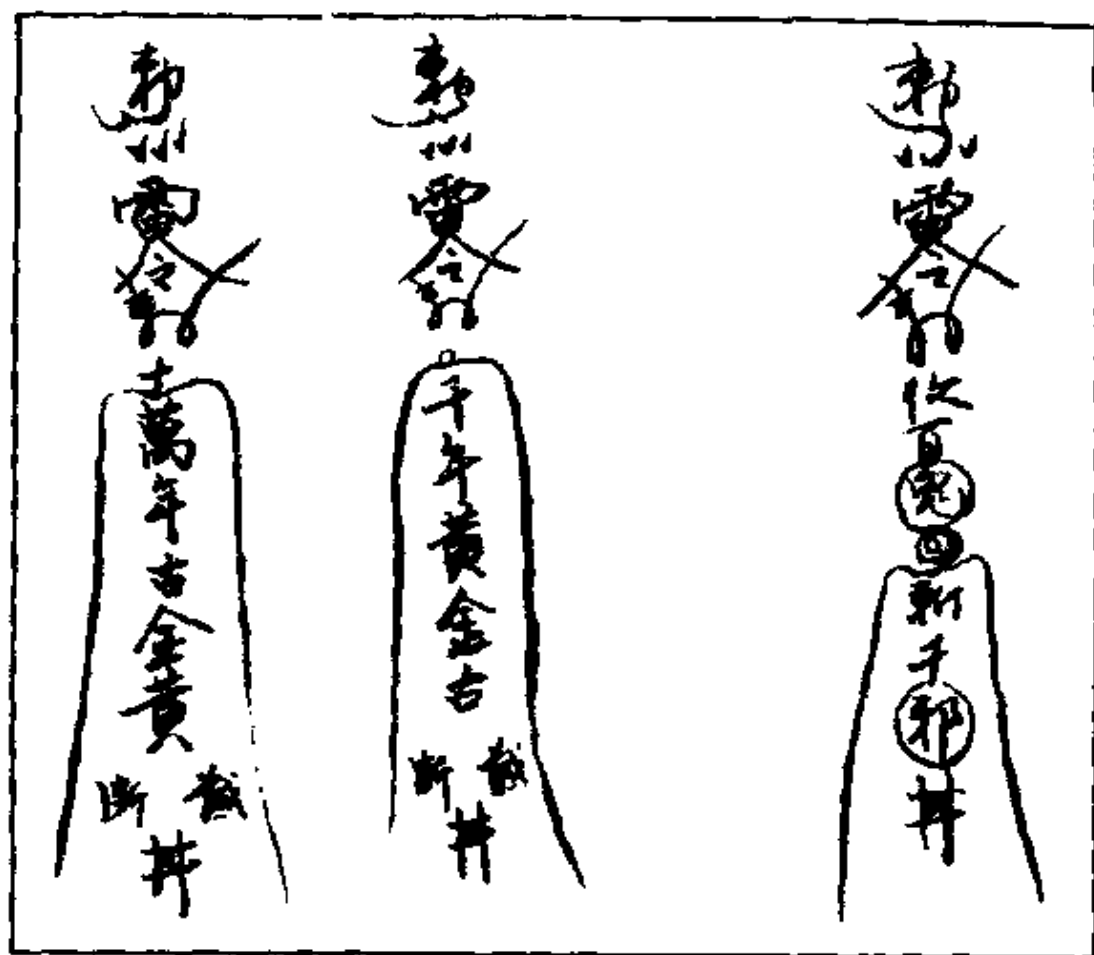 勅雷令百鬼斬千邪井
勅雷令千年黃金古截斷井
勅雷令萬年古金黃截斷井